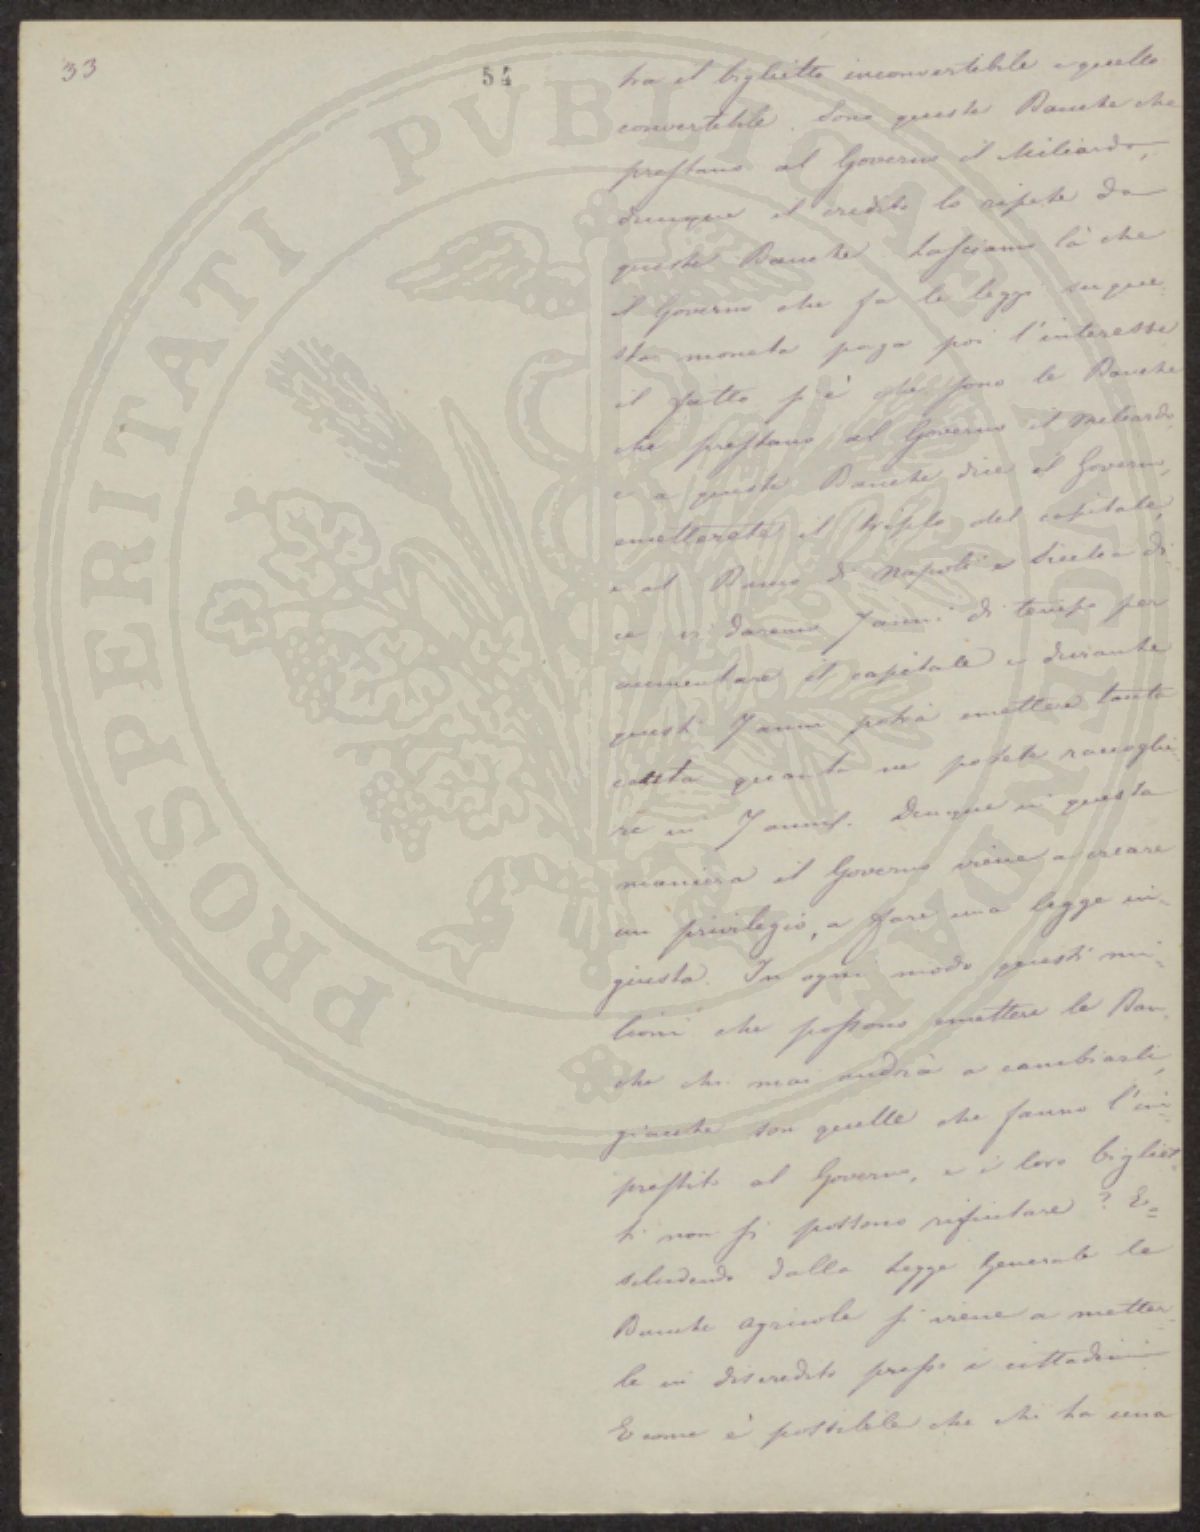 33
54
tra il biglietto inconvertibile e quello
convertibile. Sono queste Banche che
prestano al Governo il Miliardo,
dunque il credito lo ripete da
queste Banche. Lasciamo là che
il Governo che fa le leggi su que
sta moneta paga poi l'interesse
il fatto si è che sono le Banche
che prestano al Governo il Miliardo
e a queste Banche dice il Governo,
emetterete il triplo del capitale,
e al Banco di Napoli e Sicilia di
ce vi daremo 7 anni di tempo per
aumentare il capitale e durante
questi 7 anni potrà emettere tanta
carta quanta ne potete raccoglie
re in 7 anni. Dunque in questa
maniera il Governo viene a creare
un privilegio, a fare una legge in=
giusta. In ogni modo questi mi=
lioni che possono emettere le Ban
che chi mai andrà a cambiarli,
giacche son quelle che fanno l'im=
prestito al Governo, e i loro bigliet=
ti non si possono rifiutare? E=
scludendo dalla Legge Generale le
Banche agricole si viene a metter=
le in discredito presso i cittadini
E come è possibile che chi ha una
PROSPERITATI PVBLICAE